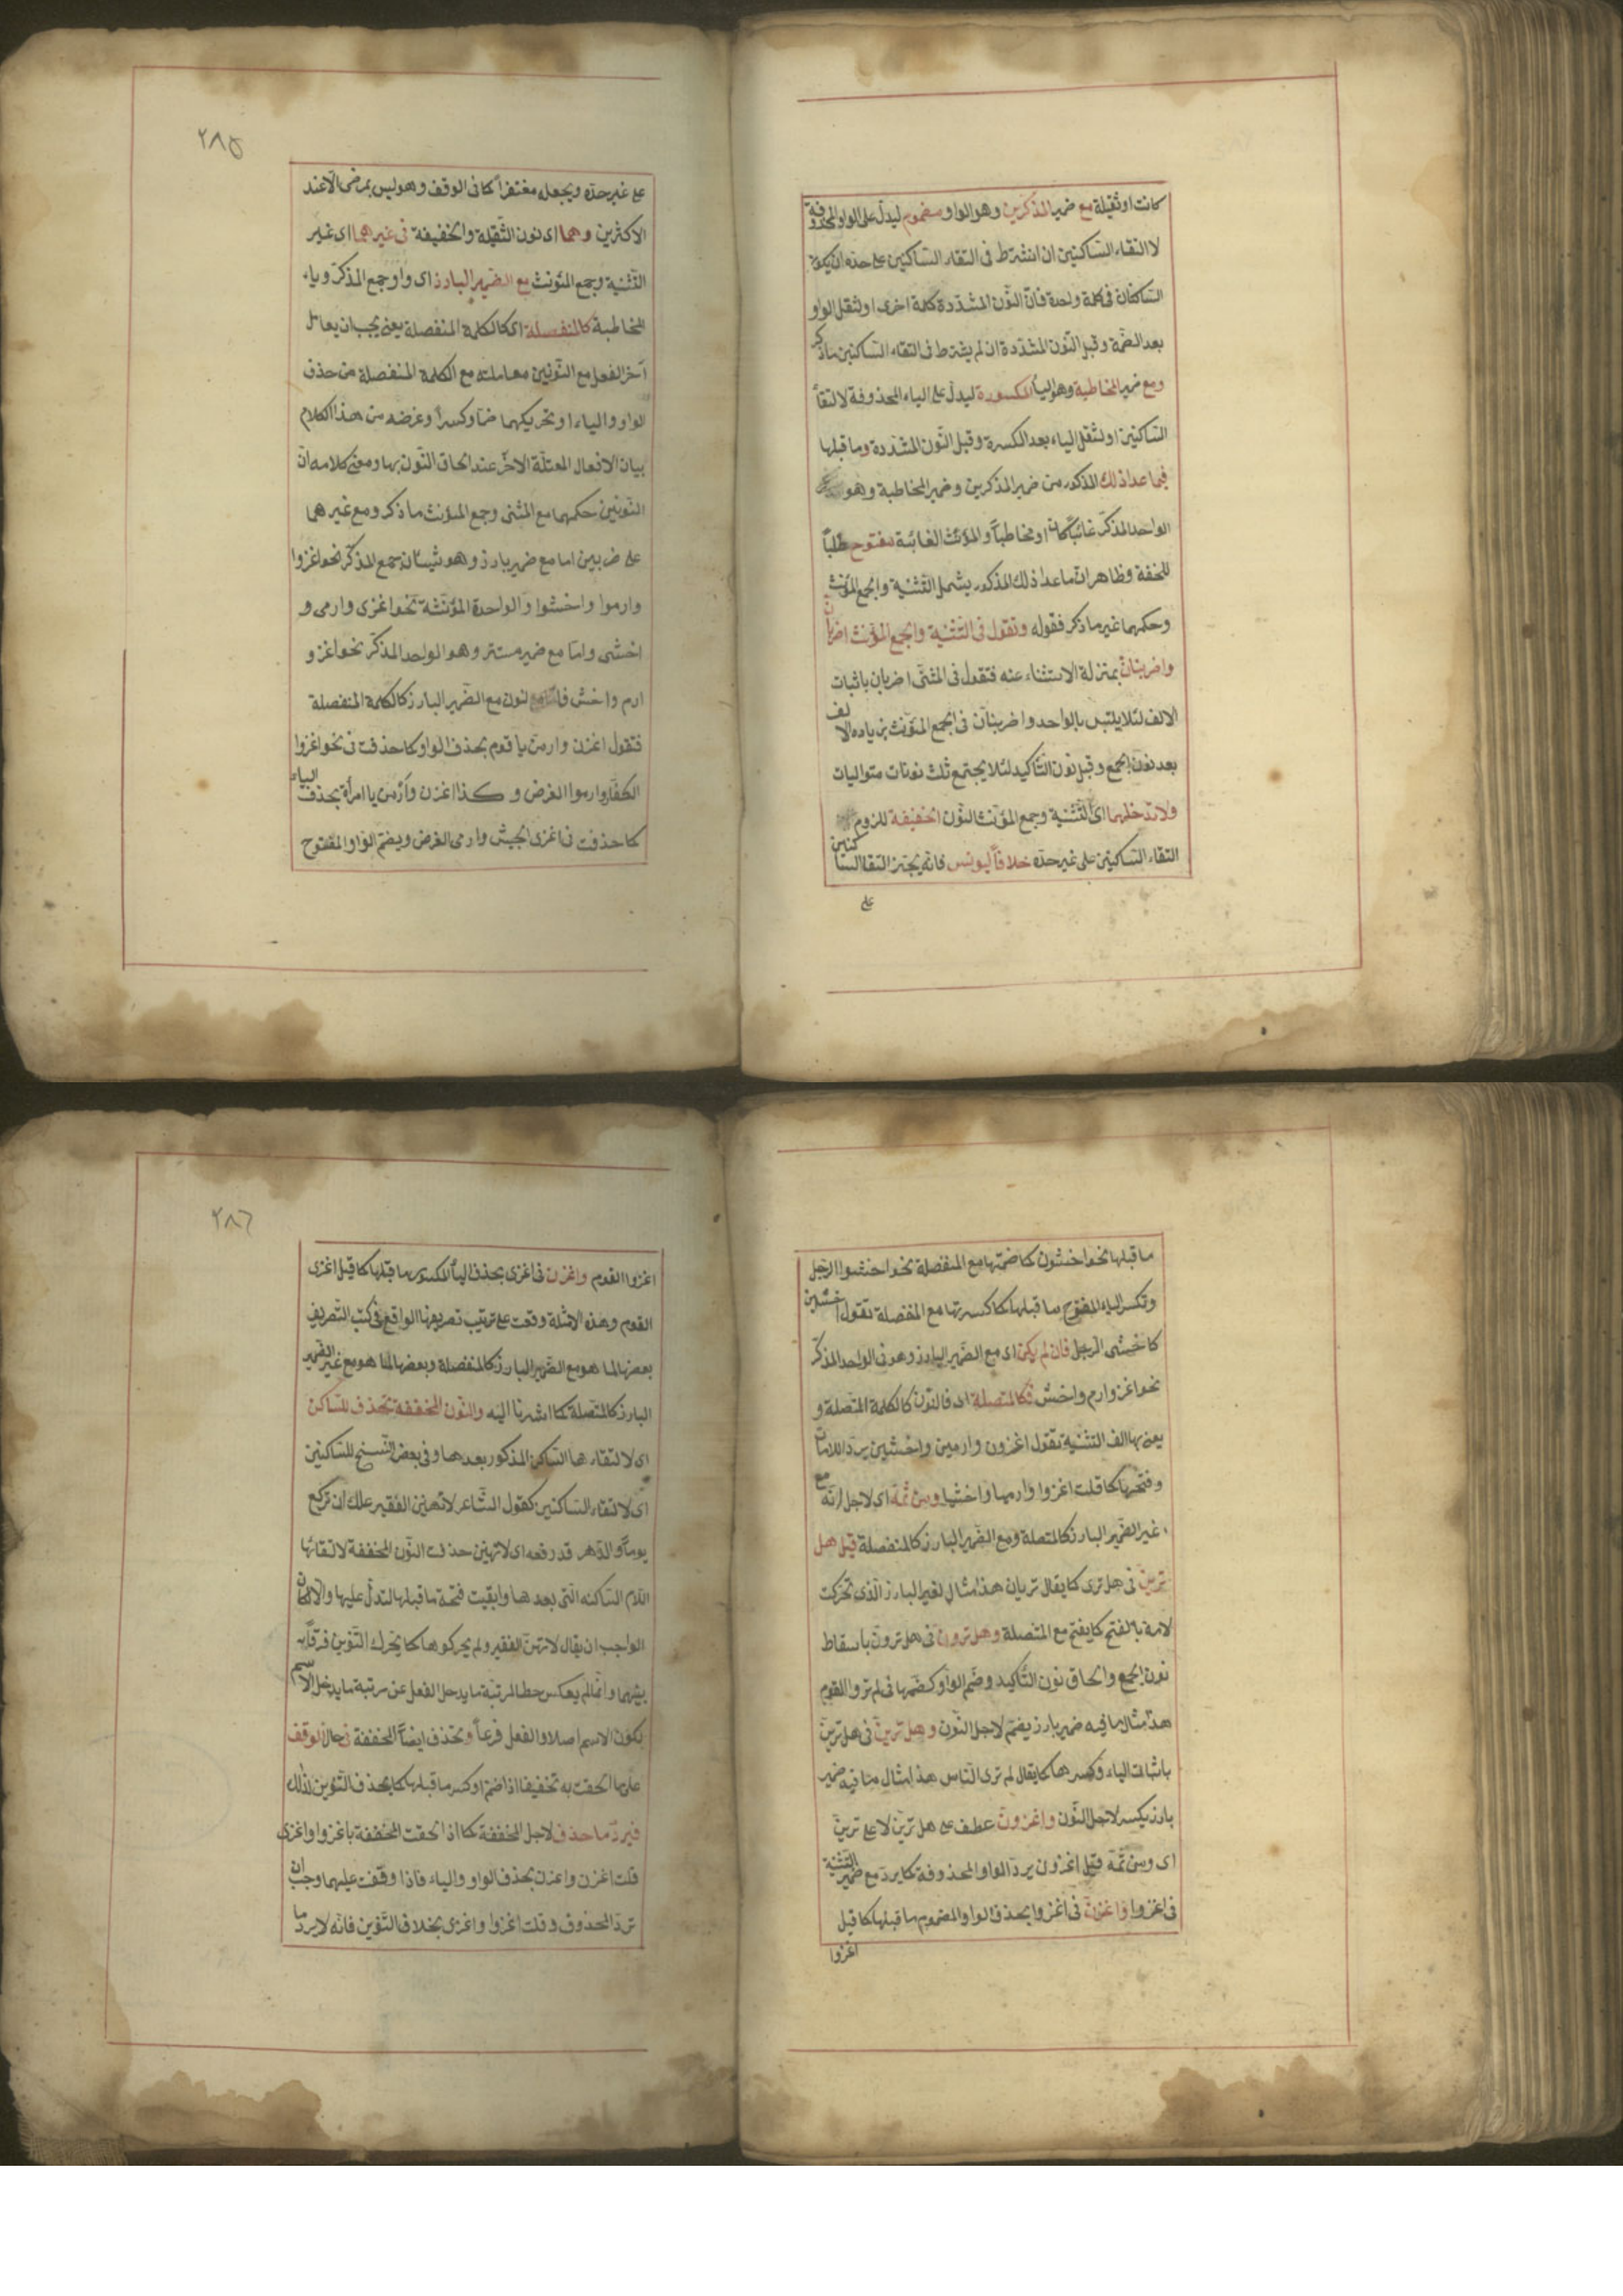 كانت او ثقيلة مع ضمير المذكرين وهو الواو مضموم ليدل على الواو المحذوفة
لالتقاء الساكنين ان اشترط في التقاء الساكنين على حده ان يكون
الساكنان في كلمة واحدة فان النّون المشدّدة كلمة اخرى او لثقل الواو
بعد الضمة وقبل النّون المشدّدة ان لم يشترط في التقاء الساكنين ما ذكر
ومع ضمير المخاطبة وهو الياء المكسورة ليدلّ على الياء المحذوفة لالتقاء
الساكنين او لثقل الياء بعد الكسرة وقبل النّون المشدّدة وما قبلها
فيما عدا ذلك المذكور من ضمير المذكرين وضمير المخاطبة وهو
الواحد المذكّر غائبًا كان او مخاطبًا والمؤنّث الغائبة مفتوح طلبًا
للخفة وظاهر انّ ما عدا ذلك المذكور يشمل التثنية والجمع المؤنث
وحكمهما غير ما ذكر فقوله وتقول في التّثنية والجمع المؤنث اضربانّ
واضربنانّ بمنزلة الاستثناء عنه فتقول في المثنّى اضربان باثبات
الالف لئلا يلتبس بالواحد واضربنانّ في الجمع المؤنّث بزيادة الالف
بعد نون الجمع وقبل نون التّأكيد لئلا يجتمع ثلث نونات متواليات
ولا تدخلهما اى التّثنية وجمع المؤنّث النّون الخفيفة للزوم
التقاء الساكنين على غير حدّه خلافًا ليونس فانّه يجيز التقاء الساكنين
على
٢٨٥
على غير حدّه ويجعله مغتفرًا كما في الوقف وهو ليس بمرضى الّا عند
الاكثرين وهما اى نون الثّقيلة والخفيفة فى غيرهما اى غير
التّثنية وجمع المؤنث مع الضّمير البارز اى واو جمع المذكّر وياء
المخاطبة كالمنفصلة اى كالكلمة المنفصلة يعنى يجب ان يعامل
آخر الفعل مع النّونين معاملته مع الكلمة المنفصلة من حذف
الواو والياء او تحريكهما ضمًا وكسرًا وغرضه من هذا الكلام
بيان الافعال المعتلّة الاخر عند الحاق النّون بها ومعنى كلامه انّ
النّونين حكمهما مع المثنى وجمع المؤنث ما ذكر ومع غيرهما
على ضربين اما مع ضمير بارز وهو شيئان جمع المذكّر نحو اغزوا
وارموا واخشوا والواحدة المؤنّثة نحو اغزى وارمى و
اخشى وامّا مع ضمير مستتر وهو الواحد المذكّر نحو اغز و
ارم واخش فالنّون مع الضّمير البارز كالكلمة المنفصلة
فتقول اغزن وارمنّ يا قوم بحذف الواو كما حذفت فى نحو اغزوا
الكفّار وارموا الغرض وكذا اغزن وارمن يا امرأة بحذف الياء
كما حذفت فى اغزى الجيش وارمى الغرض ويضمّ الواو المفتوح
ما قبلها نحو اخشون كما ضمّتها مع المنفصلة نحو اخشوا الرجل
وتكسر الياء المفتوح ما قبلها كما كسرتها مع المنفصلة تقول اخشين
كاخشى الرجل فان لم يكن اى مع الضّمير البارز وهو فى الواحد المذكّر
نحو اغز وارم واخش فكالمتصلة اى فالنّون كالكلمة المتّصلة و
يعنى بها الف التثنية تقول اغزون وارمين واخشين بردّ اللامات
وفتحها كما قلت اغزوا وارميا واخشيا ومن ثمّة اى لاجل انّه مع
غير الضّمير البارز كالمتصلة ومع الضّمير البارز كالمنفصلة قيل هل
ترينّ فى هل ترى كما يقال تريان هذا مثال لغير البارز الّذى تحركت
لامه بالفتح كما يفتح مع المتصلة وهل ترونّ فى هل ترون باسقاط
نون الجمع والحاق نون التّأكيد وضمّ الواو كضمّها فى لم تروا القوم
هذا مثال ما فيه ضمير بارز يضمّ لاجل النّون وهل ترينّ فى هل ترين
باثبات الياء وكسرها كما يقال لم ترى النّاس هذا مثال ما فيه ضمير
بارز يكسر لاجل النّون واغزونّ عطف على هل ترينّ لا على ترينّ
اى ومن ثمّة قيل اغزون بردّ الواو المحذوفة كما يردّ مع ضمير التّثنية
فى اغزوا واغزنّ فى اغزوا بحذف الواو المضموم ما قبلها كما قيل
اغزوا
٢٨٦
اغزوا القوم واغزن فى اغزى بحذف الياء المكسور ما قبلها كما قيل اغزى
القوم وهذه الامثلة وقعت على ترتيب تصريفها الواقع فى كتب التّصريف
بعضها لما هو مع الضّمير البارز كالمنفصلة وبعضها لما هو مع غير الضّمير
البارز كالمتّصلة كما اشرنا اليه والنّون المخفّفة تحذف للسّاكن
اى لالتقاءها السّاكن المذكور بعدها وفى بعض النّسخ للسّاكنين
اى لالتقاء السّاكنين كقول الشّاعر لا تهين الفقير علّك ان تركع
يومًا والدّهر قد رفعه اى لا تهينن حذفت النّون المخففة لالتقائها
اللام السّاكنة الّتى بعدها وابقيت فتحة ما قبلها لتدلّ عليها والا لكان
الواجب ان يقال لا تهن الفقير ولم يحركوها كما يحرك التّنوين فرقًا به
بينهما وانّما لم يعكس حطا لمرتبة ما يدخل الفعل عن مرتبة ما يدخل الاسم
لكون الاسم اصلا والفعل فرعًا وتحذف ايضًا المخففة فى حال الوقف
على ما الحقت به تخفيفًا اذا ضمّ او كسر ما قبلها كما يحذف التّنوين لذلك
فيردّ ما حذف لاجل المخففة كما اذا الحقت المخففة باغزوا واغزى
قلت اغزن واغزن بحذف الواو والياء فاذا وقفت عليهما وجب ان
تردّ المحذوف وقلت اغزوا واغزى بخلاف التّنوين فانّه لا يردّ ما